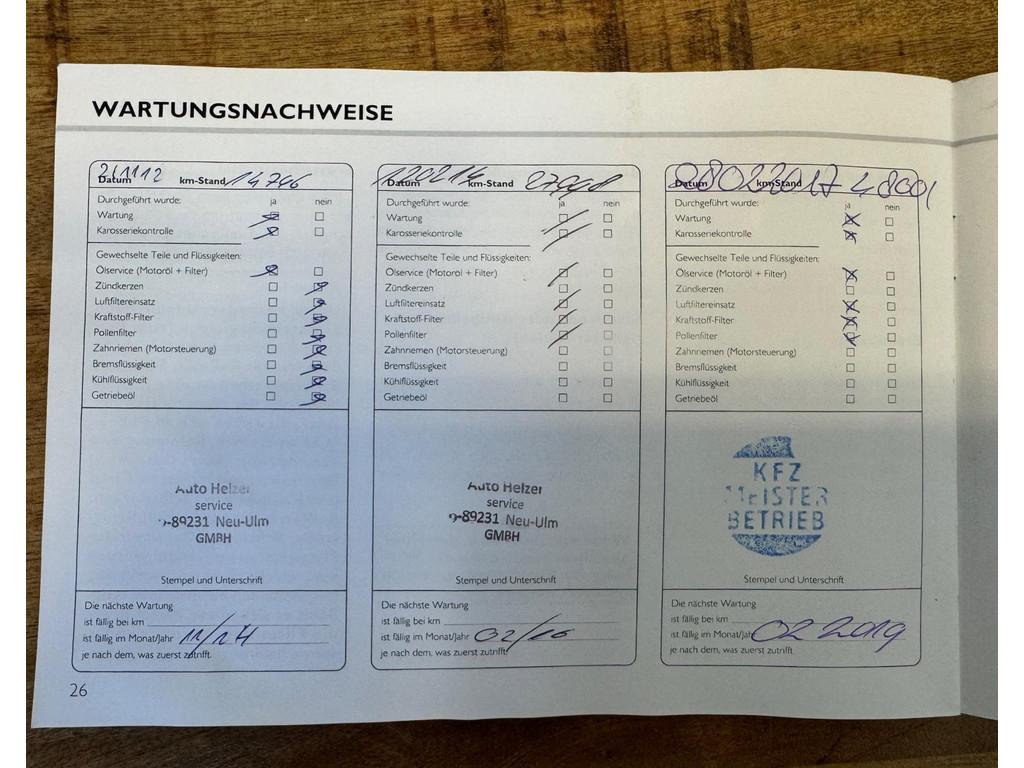 WARTUNGSNACHWEISE
Datum 211112 km-Stand 14746
Durchgeführt wurde: ja nein
Wartung
Karosseriekontrolle
Gewechselte Teile und Flüssigkeiten:
Ölservice (Motoröl + Filter)
Zündkerzen
Luftfiltereinsatz
Kraftstoff-Filter
Pollenfilter
Zahnriemen (Motorsteuerung)
Bremsflüssigkeit
Kühlflüssigkeit
Getriebeöl
Auto Helzer
service
D-89231 Neu-Ulm
GMBH
Stempel und Unterschrift
Die nächste Wartung
ist fällig bei km
ist fällig im Monat/Jahr 11/14
je nach dem, was zuerst zutrifft.
Datum 120214 km-Stand 27998
Durchgeführt wurde: ja nein
Wartung
Karosseriekontrolle
Gewechselte Teile und Flüssigkeiten:
Ölservice (Motoröl + Filter)
Zündkerzen
Luftfiltereinsatz
Kraftstoff-Filter
Pollenfilter
Zahnriemen (Motorsteuerung)
Bremsflüssigkeit
Kühlflüssigkeit
Getriebeöl
Auto Helzer
service
D-89231 Neu-Ulm
GMBH
Stempel und Unterschrift
Die nächste Wartung
ist fällig bei km
ist fällig im Monat/Jahr 02/16
je nach dem, was zuerst zutrifft.
Datum 28022017 km-Stand 48001
Durchgeführt wurde: ja nein
Wartung
Karosseriekontrolle
Gewechselte Teile und Flüssigkeiten:
Ölservice (Motoröl + Filter)
Zündkerzen
Luftfiltereinsatz
Kraftstoff-Filter
Pollenfilter
Zahnriemen (Motorsteuerung)
Bremsflüssigkeit
Kühlflüssigkeit
Getriebeöl
KFZ
MEISTER
BETRIEB
Stempel und Unterschrift
Die nächste Wartung
ist fällig bei km
ist fällig im Monat/Jahr 02 2019
je nach dem, was zuerst zutrifft.
26